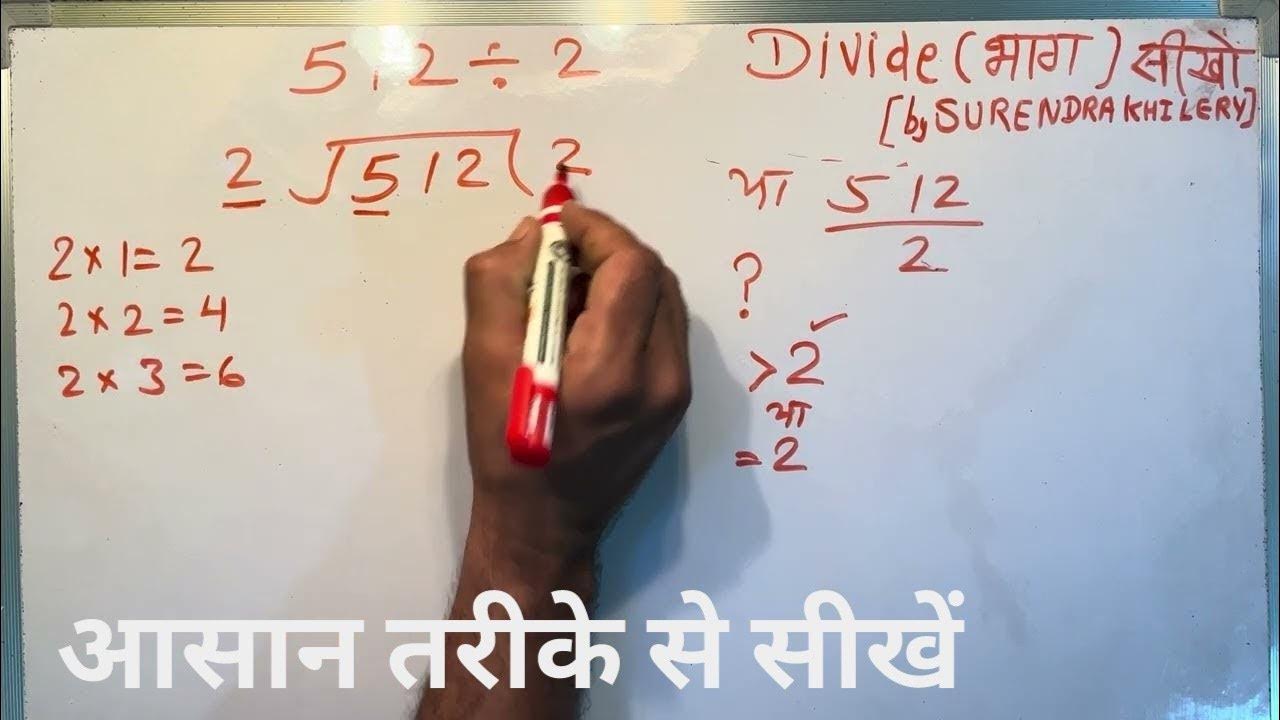 512 ÷ 2
Divide (भाग) सीखो
[by SURENDRA KHILERY]
2 √512( 2
या 512
2
2 × 1 = 2
2 × 2 = 4
2 × 3 = 6
?
> 2 ✓
या
= 2
आसान तरीके से सीखें